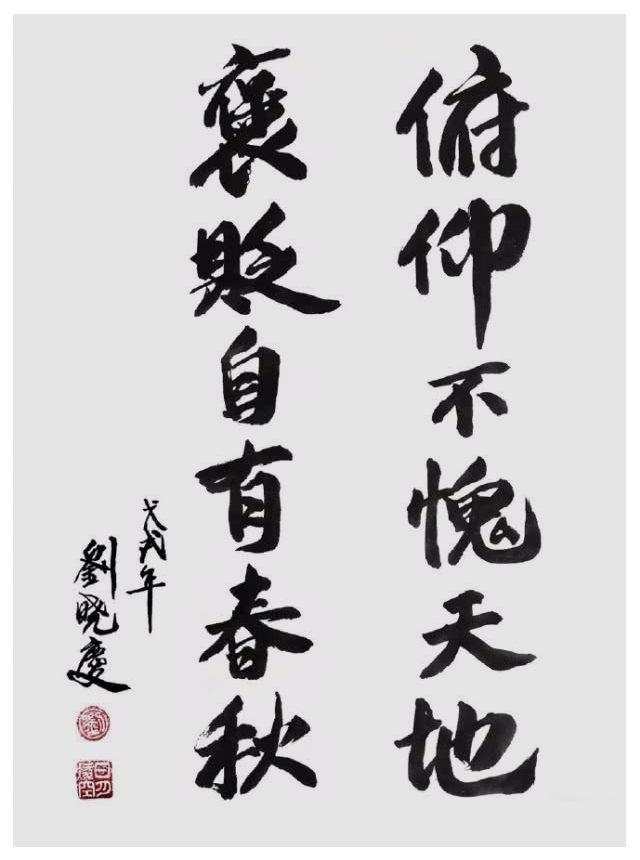 俯仰不愧天地
褒贬自有春秋
戊戌年
劉曉慶
劉